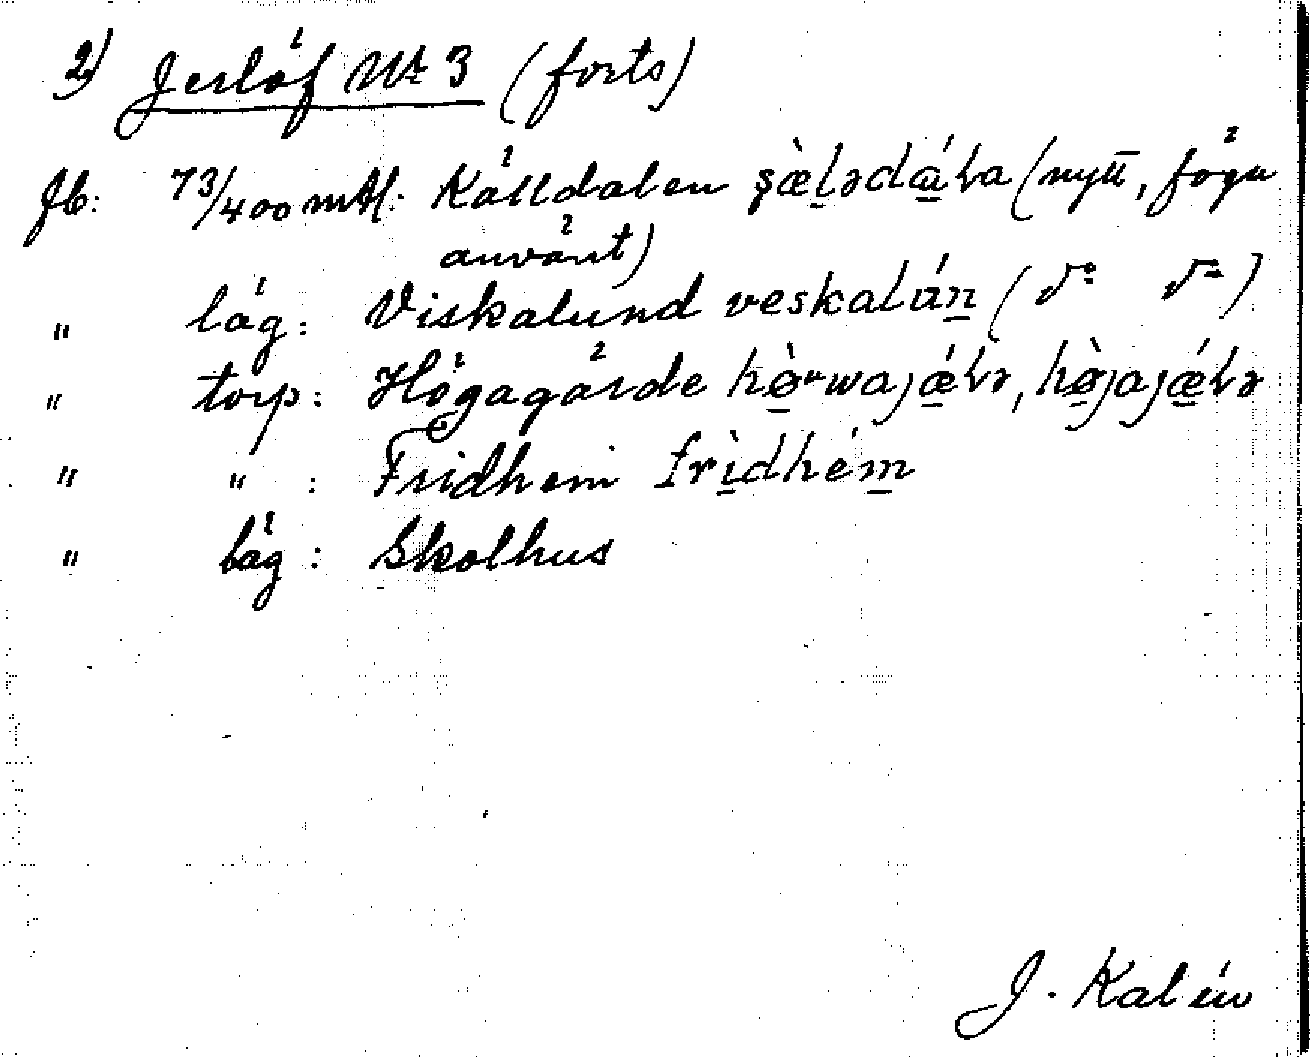 2) Jerlöf Nr 3 (forts)
Jb: 73/400 mtl: Källdalen ʂæ̀lədáɫa (nytt, föga
använt)
" läg: Viskalund veskalán (do do)
" torp: Högagärde hø̀wajǽɫə, hø̀jajǽɫə
" " : Fridhem frìdhém
" läg: Skolhus
J. Kalén